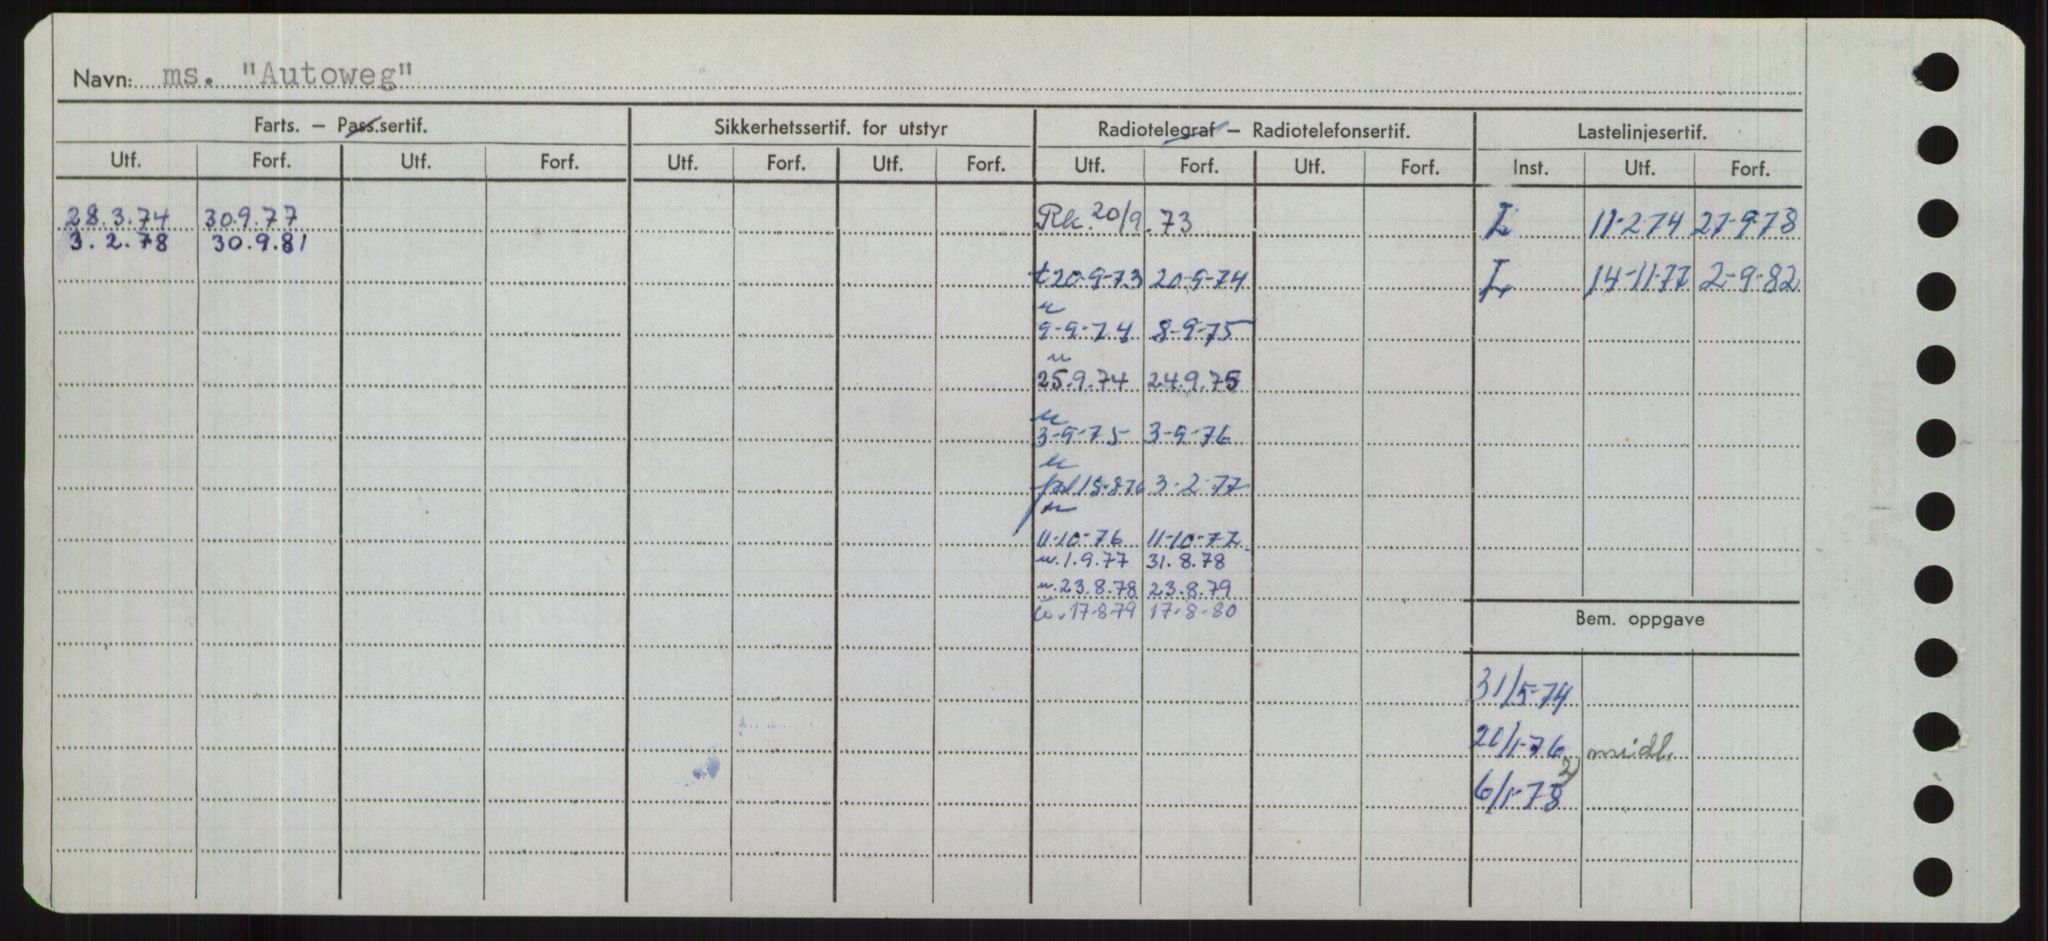 Navn: ms. "Autoweg"
Farts. – Pass.sertif. Sikkerhetssertif. for utstyr Radiotelegraf – Radiotelefonsertif. Lastelinjesertif.
Utf. Forf. Utf. Forf. Utf. Forf. Utf. Forf. Utf. Forf. Utf. Forf. Inst. Utf. Forf.
28.3.74 30.9.77 Rk. 20/9.73 L 11-2-74 27-9-78
3.2.78 30.9.81
t 20-9-73 20-9-74 L 14-11-77 2-9-82
u
9-9-74 8-9-75
u
25.9.74 24.9.75
u
3-9-75 3-9-76
u
18-8-76 3-2-77
u
11-10-76 11-10-77
u. 1.9.77 31.8.78
u. 23.8.78 23.8.79
u. 17-8-79 17-8-80
Bem. oppgave
31/5-74
20/1-76 midl.
6/1-78 2)